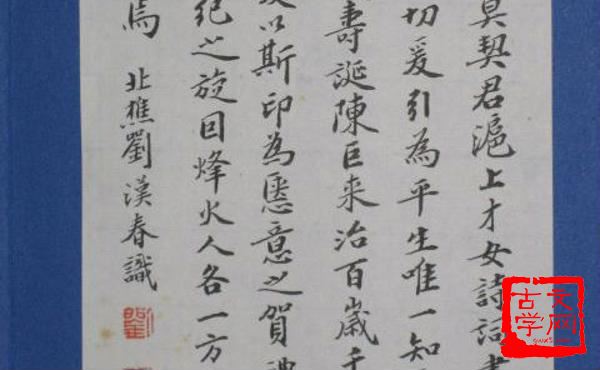 契君滬上才女詩詞書
切爰引為平生唯一知
壽誕陳巨来治百歲千
以斯印為愜意之賀禮
紀之旋因烽火人各一方
焉 北樵劉漢春識
古文学网